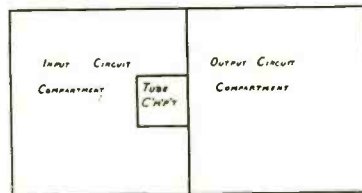 INPUT CIRCUIT
COMPARTMENT
TUBE
C'M'P'T
OUTPUT CIRCUIT
COMPARTMENT